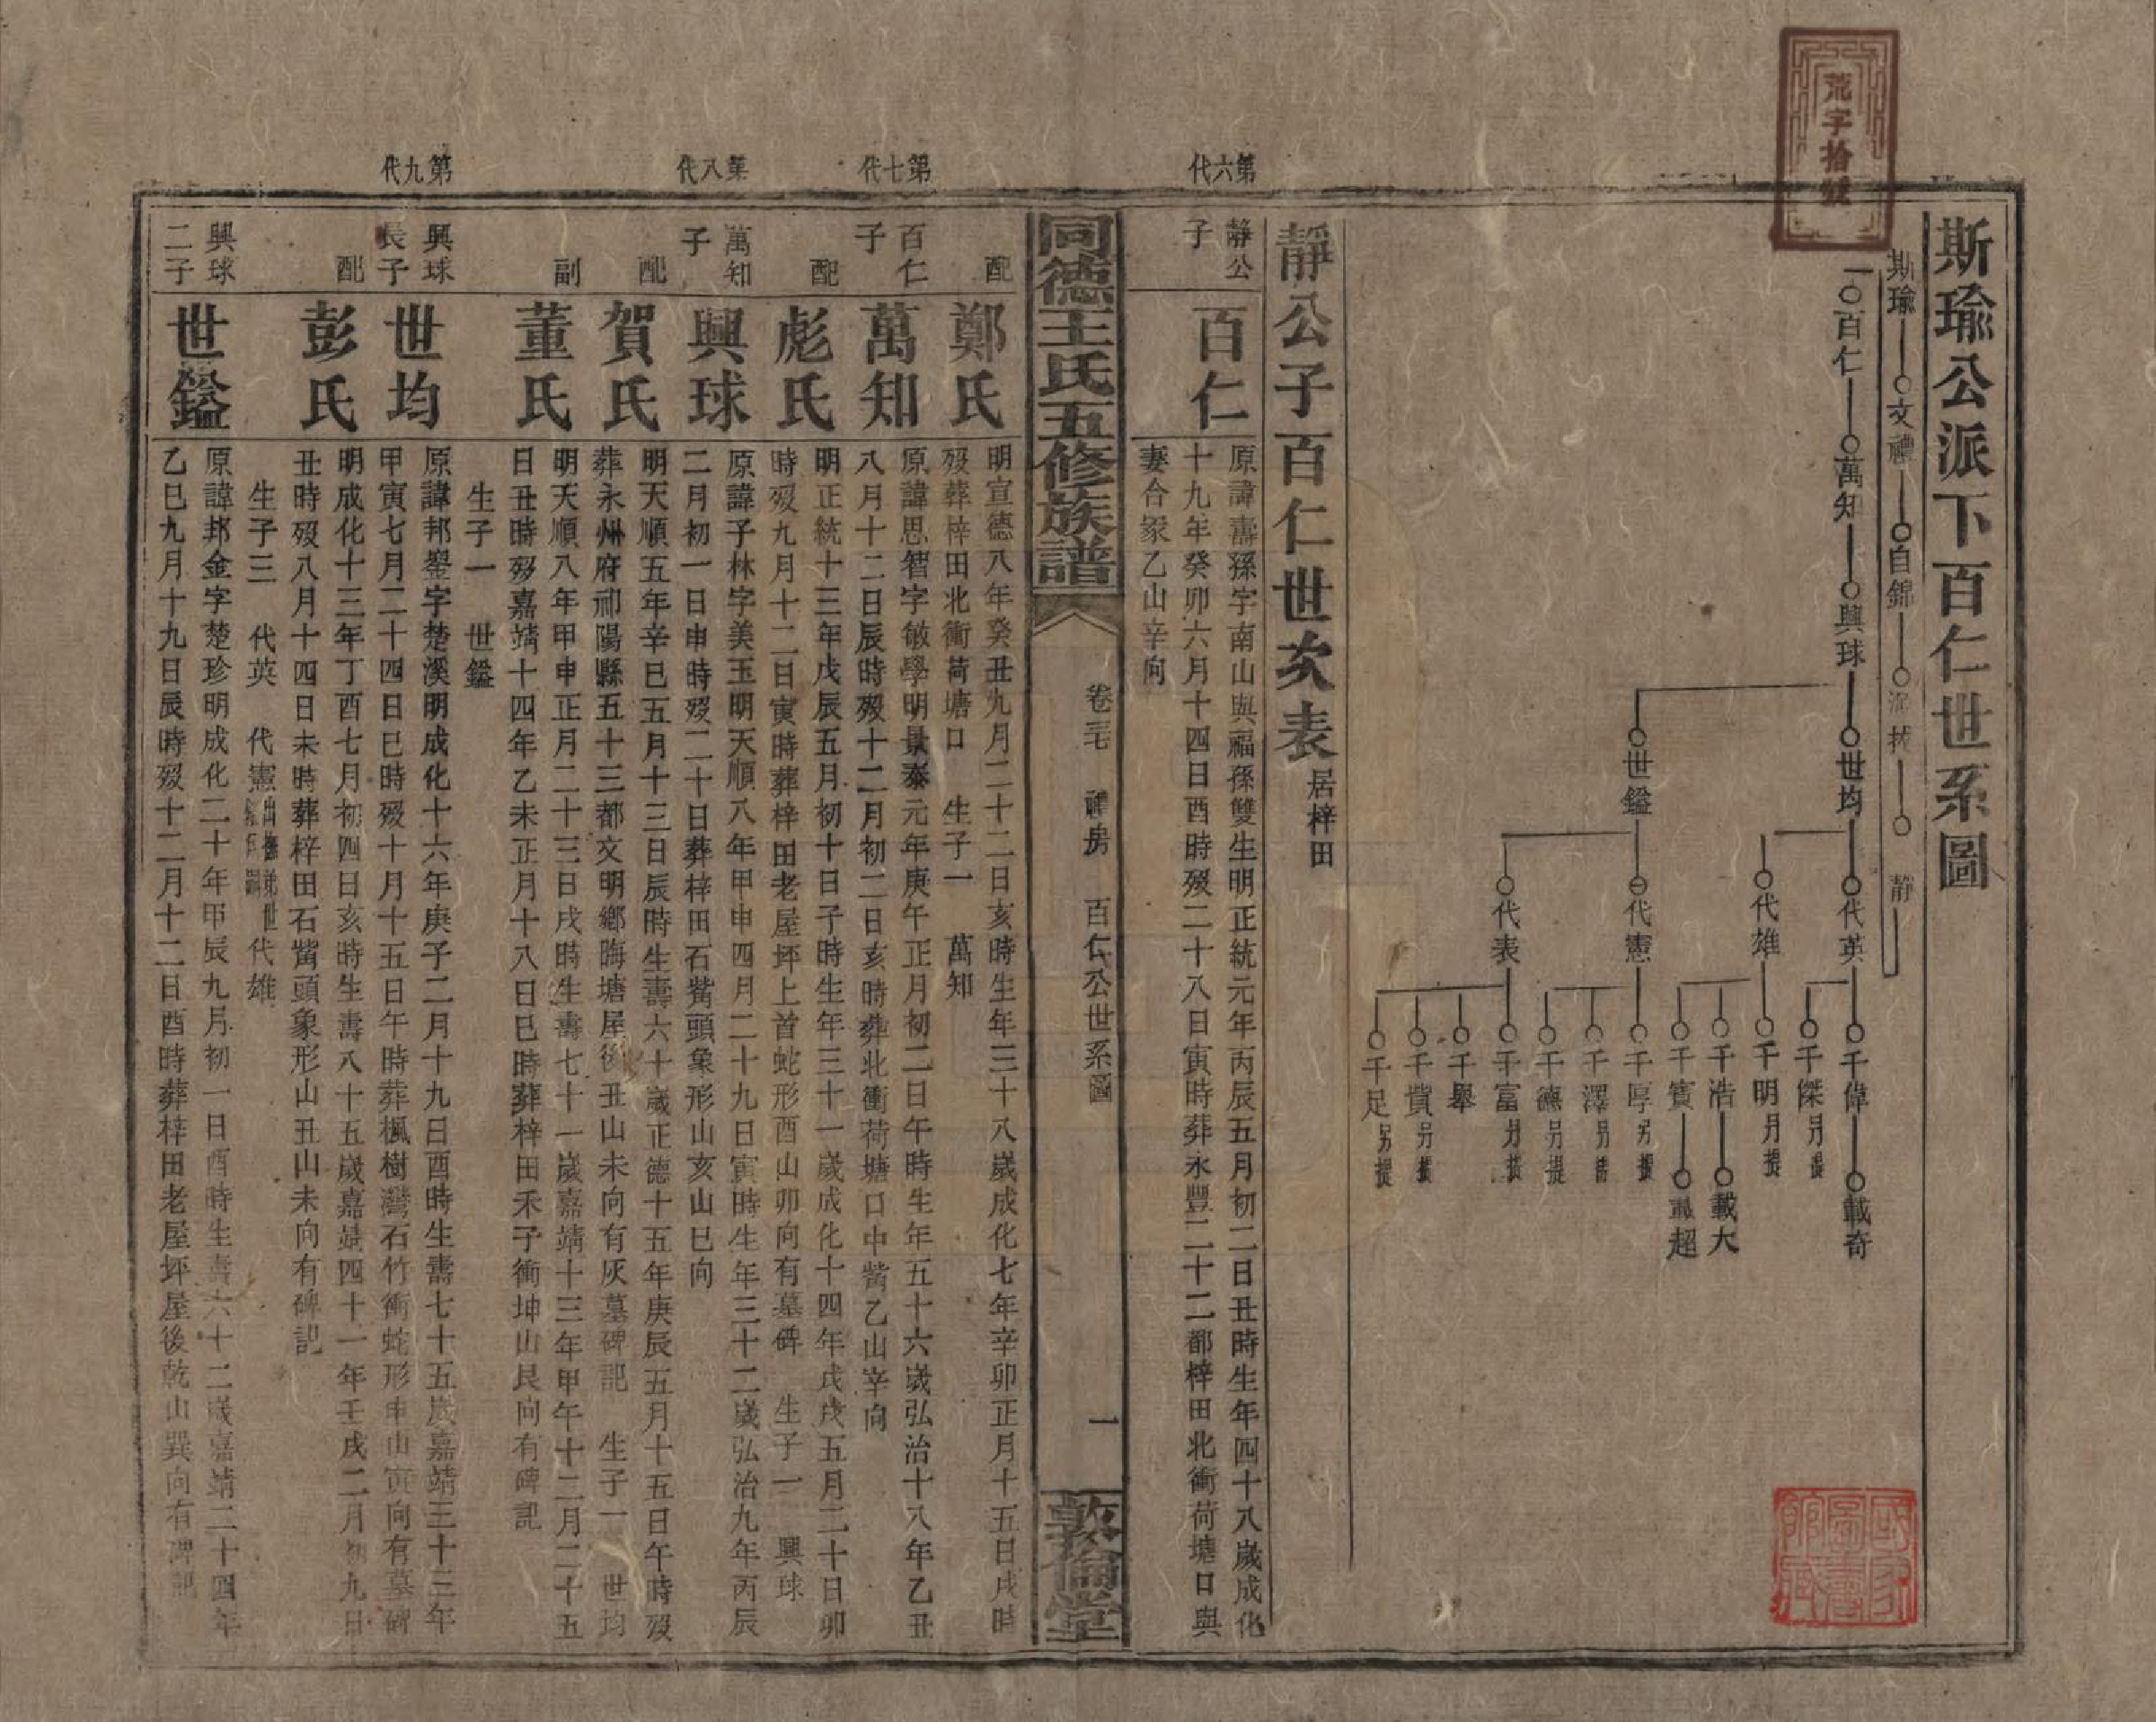 荒字拾號
斯瑜公派下百仁世系圖
斯瑜 文禮 自錦 靜
百仁 萬知 興球 世均 代英 千偉 載奇
千傑另提
代雄 千明另提
千浩 載大
千賓 載超
世鎰 代憲 千厚另提
千澤另提
千德另提
代表 千富另提
千舉
千貲另提
千足另提
靜公子百仁世次表 居梓田
第六代
靜公子
百仁
原諱壽孫字南山與福孫雙生明正統元年丙辰五月初二日丑時生年四十八歲成化
十九年癸卯六月十四日酉時歿二十八日寅時葬永豐二十二都梓田北衝荷塘口與
妻合冢乙山辛向
同德王氏五修族譜
卷三 禮房 百仁公世系圖
一
敦倫堂
配
鄭氏
明宣德八年癸丑九月二十二日亥時生年三十八歲成化七年辛卯正月十五日戌時
歿葬梓田北衝荷塘口 生子一 萬知
第七代
百仁子
萬知
原諱思智字敏學明景泰元年庚午正月初二日午時生年五十六歲弘治十八年乙丑
八月十二日辰時歿十二月初二日亥時葬北衝荷塘口中觜乙山辛向
配
彪氏
明正統十三年戊辰五月初十日子時生年三十一歲成化十四年戊戌五月二十日卯
時歿九月十二日寅時葬梓田老屋坪上首蛇形酉山卯向有墓碑 生子一 興球
第八代
萬知子
興球
原諱子林字美玉明天順八年甲申四月二十九日寅時生年三十二歲弘治九年丙辰
二月初一日申時歿二十日葬梓田石觜頭象形山亥山巳向
配
賀氏
明天順五年辛巳五月十三日辰時生壽六十歲正德十五年庚辰五月十五日午時歿
葬永州府祁陽縣五十三都文明鄉晦塘屋後丑山未向有灰墓碑記 生子一 世均
副
董氏
明天順八年甲申正月二十三日戌時生壽七十一歲嘉靖十三年甲午十二月二十五
日丑時歿嘉靖十四年乙未正月十八日巳時葬梓田禾子衝坤山艮向有碑記
生子一 世鎰
第九代
興球長子
世均
原諱邦鋆字楚溪明成化十六年庚子二月十九日酉時生壽七十五歲嘉靖三十三年
甲寅七月二十四日巳時歿十月十五日午時葬楓樹灣石竹衝蛇形申山寅向有墓碑
配
彭氏
明成化十三年丁酉七月初四日亥時生壽八十五歲嘉靖四十一年壬戌二月初九日
丑時歿八月十四日未時葬梓田石觜頭象形山丑山未向有碑記
生子三 代英 代憲 代雄
興球二子
世鎰
原諱邦金字楚珍明成化二十年甲辰九月初一日酉時生壽六十二歲嘉靖二十四年
乙巳九月十九日辰時歿十二月十二日酉時葬梓田老屋坪屋後乾山巽向有碑記
國家圖書館藏